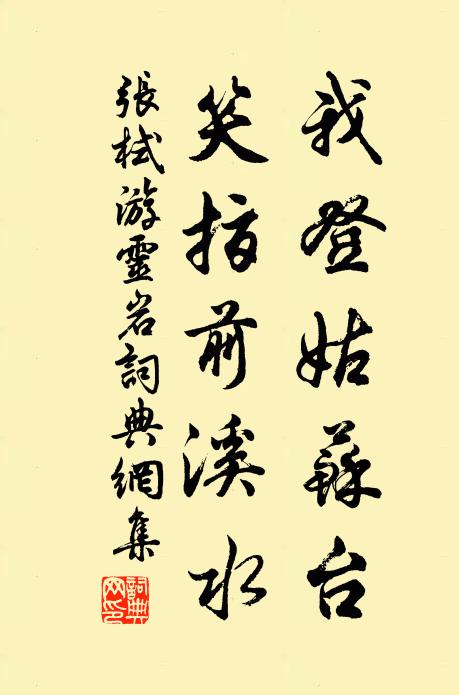 我登姑蘇台
笑指前溪水
張栻游靈岩詞典網集
詞典網印